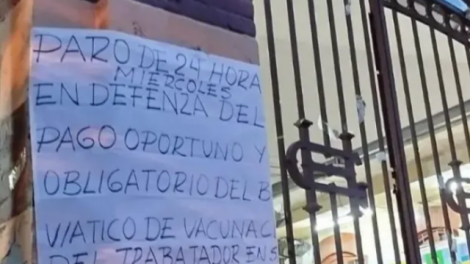 PARO DE 24 HORA
MIERCOLES
EN DEFENZA DEL
PAGO OPORTUNO Y
OBLIGATORIO DEL B
VIATICO DE VACUNACI
DEL TRABATADOR EN S